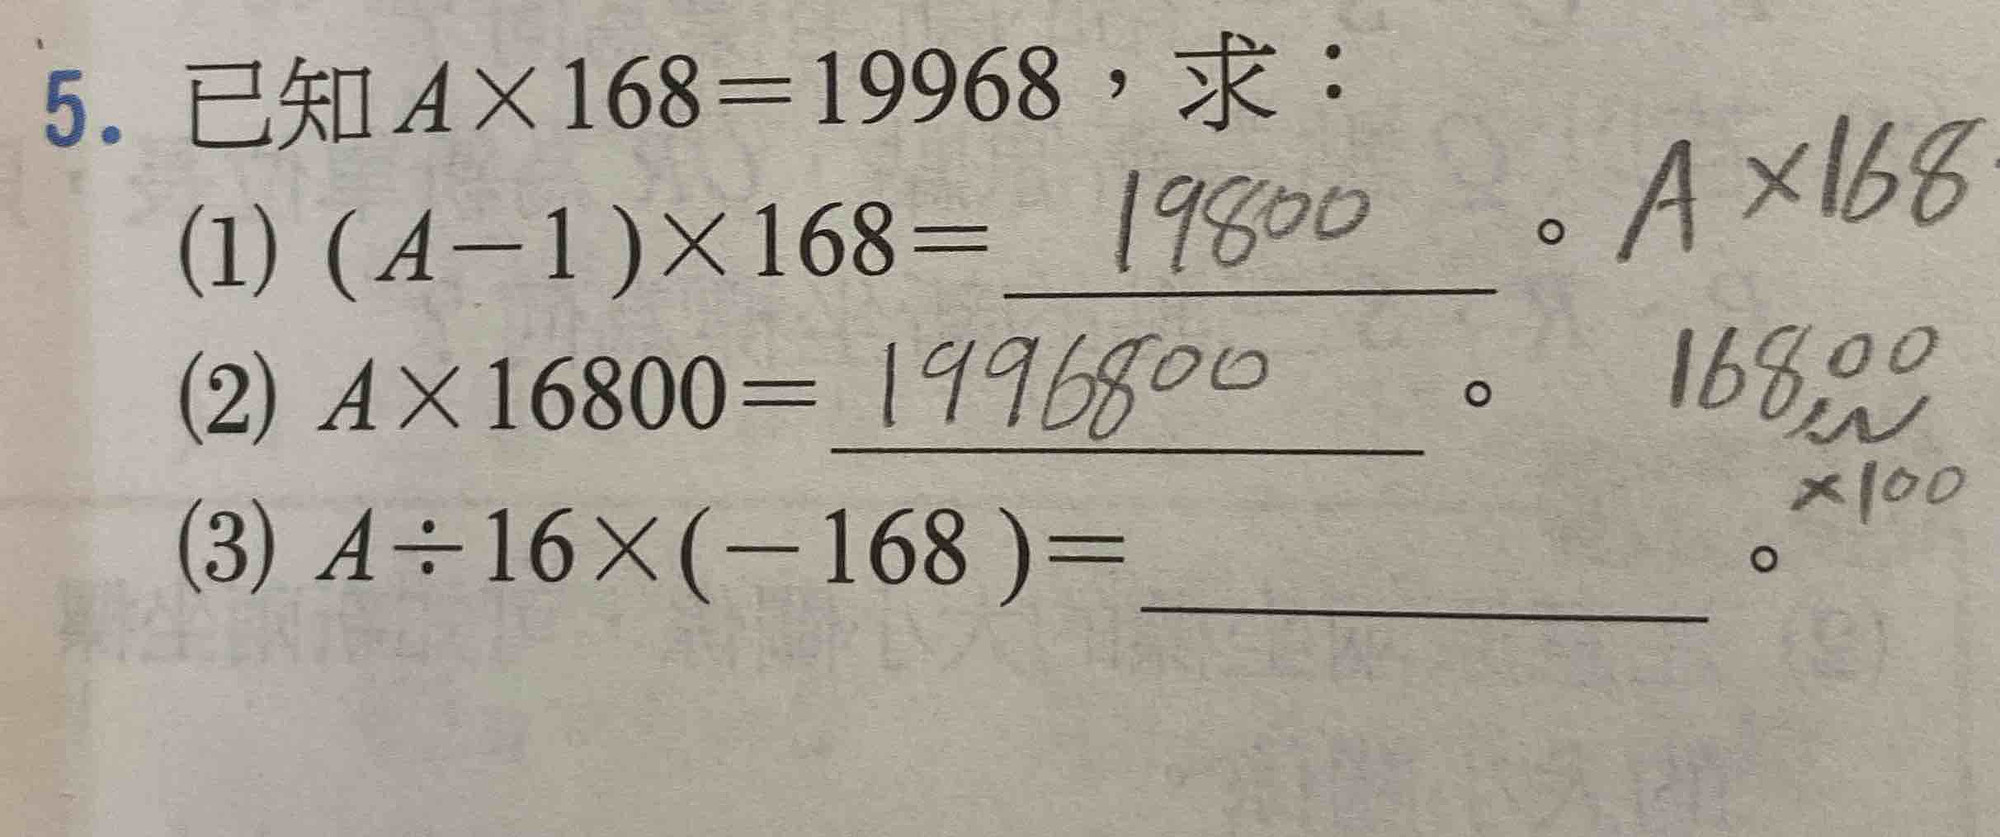 5. 已知 A×168＝19968，求：
(1) ( A－1 )×168＝ 19800 。 A×168
(2) A×16800＝ 1996800 。 16800
×100
(3) A÷16×(－168 )＝ 。